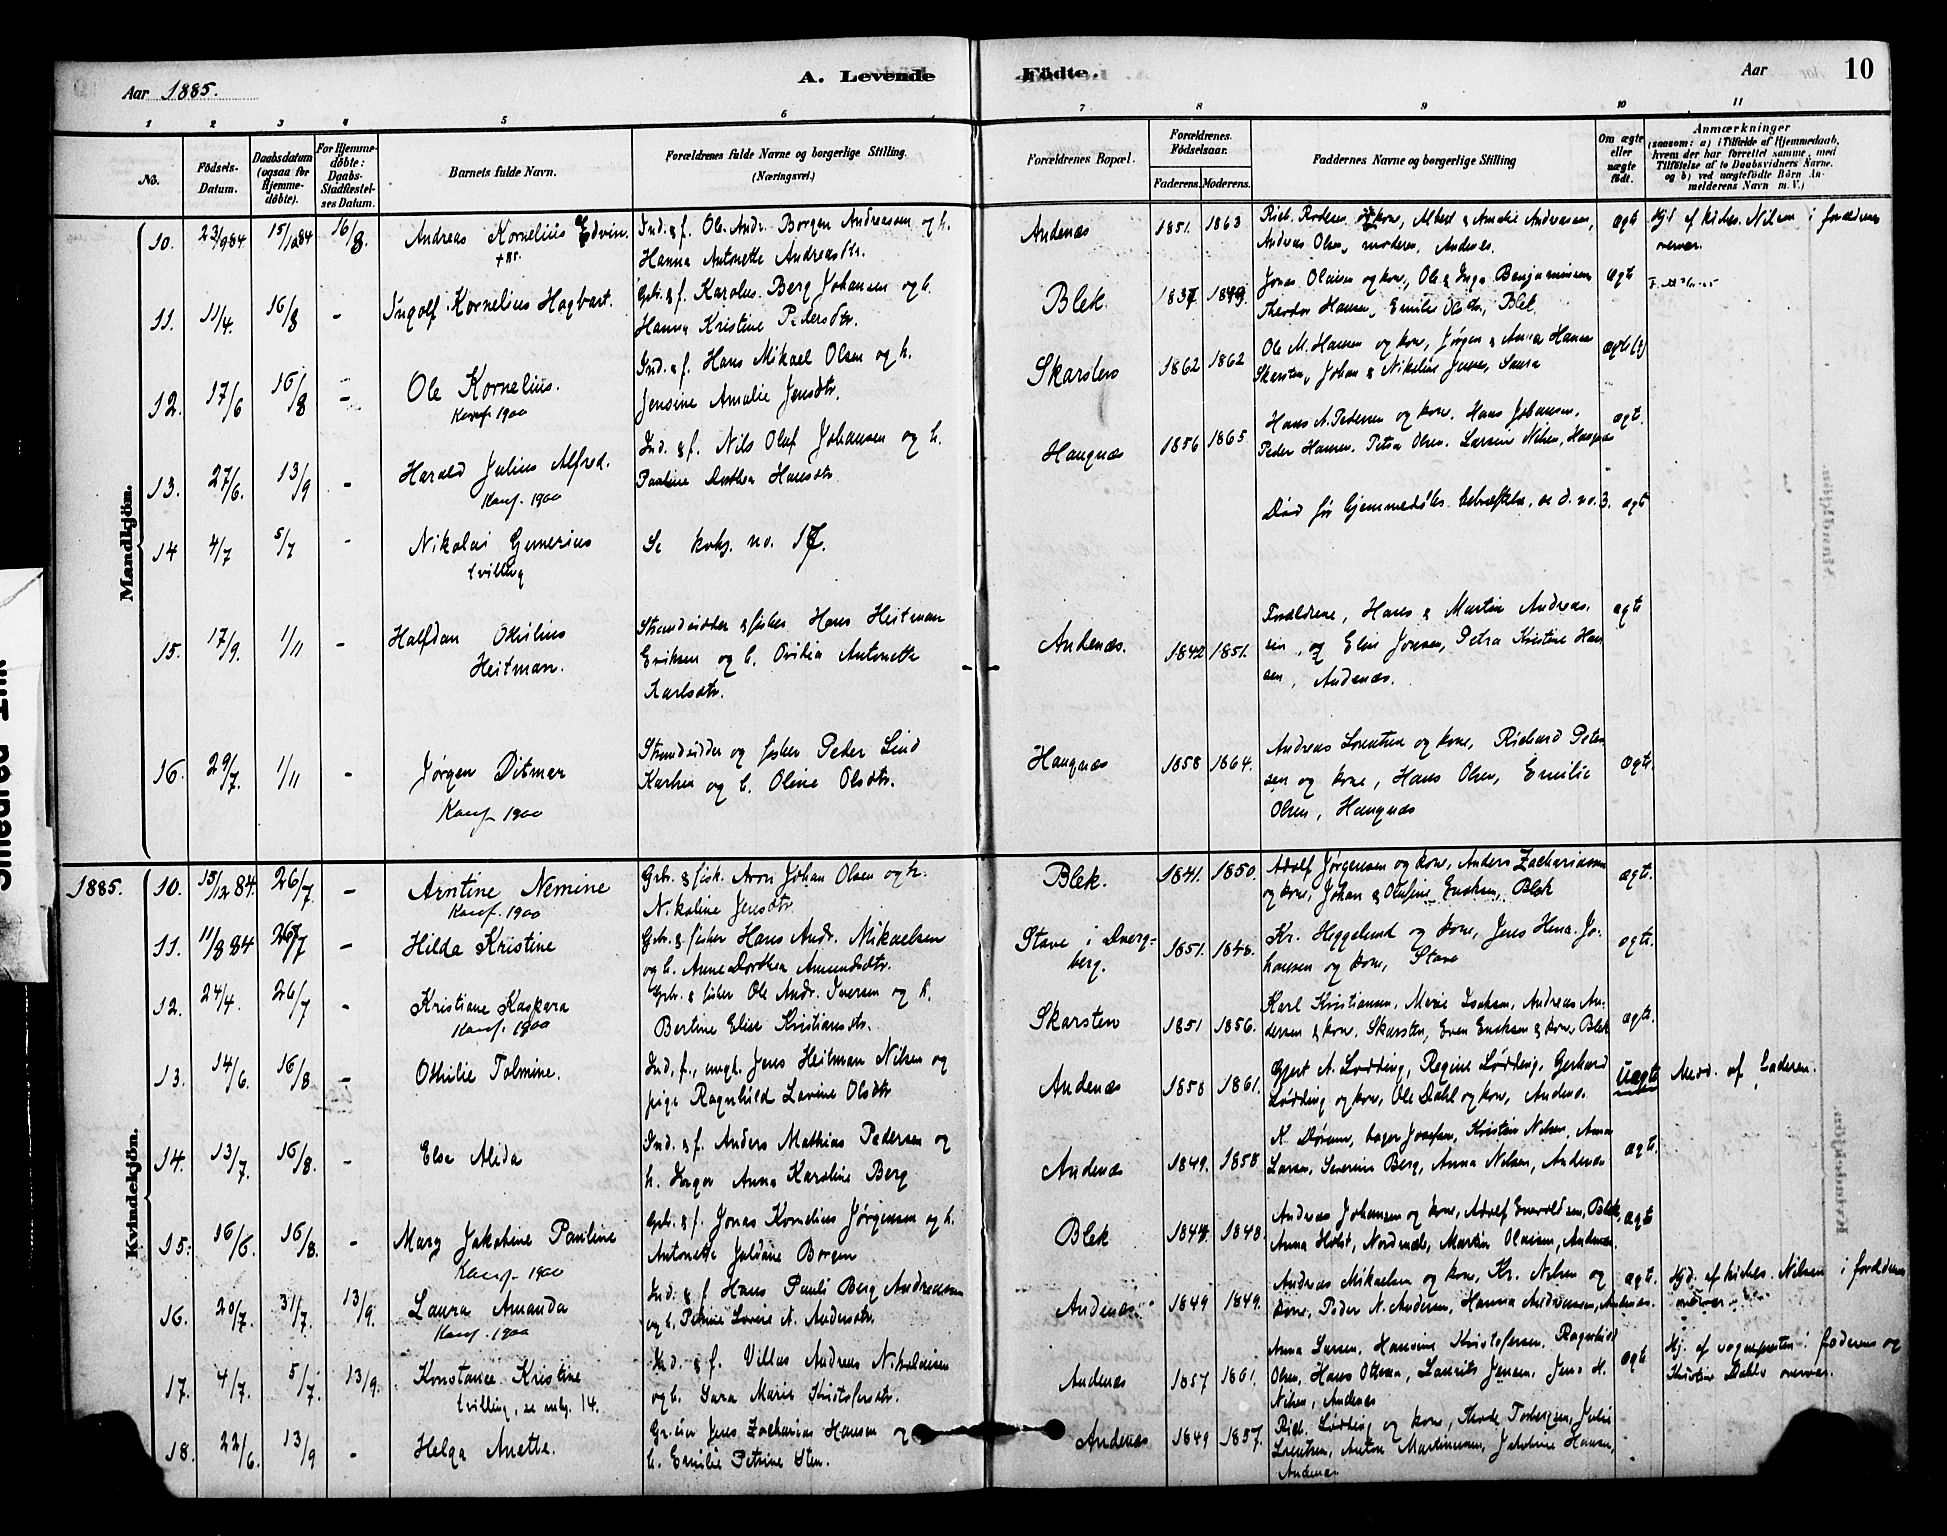 Aar 1885.
A. Levende
Födte.
Aar
10
1 2 3 4 5 6 7 8 9 10 11
No.
Födsels-
Datum.
Daabsdatum
(ogsaa for
Hjemme-
döbte).
For Hjemme-
döbte:
Daabs-
Stadfæstel-
ses Datum.
Barnets fulde Navn.
Forældrenes fulde Navne og borgerlige Stilling.
(Næringsvei.)
Forældrenes Bopæl.
Forældrenes
Födselsaar.
Faderens. Moderens.
Faddernes Navne og borgerlige Stilling
Om ægte
eller
uægte
födt.
Anmærkninger
(saasom: a) i Tilfælde af Hjemmedaab,
hvem der har forrettet samme, med
Tilföielse af to Daabsvidners Navne.
og b) ved uægtefödte Börn An-
melderens Navn m. V.)
Mandkjön.
10. 23/9 84 15/10 84 16/8. Andreas Kornelius Edvin. Ind. & f. Ole Andr. Borgen Andreassen og h.
Hanna Antonette Andreasdtr.
Andenæs 1851. 1863 Rich. Rodsen og kone, Albert & Amalie Andreasen,
Andreas Olsen, moderen, Andenes.
ægt Hjd. af kirkes. Nilsen i forældrenes
overvær.
11. 11/4. 16/8 - Ingolf Kornelius Hagbart. Gbr. & f. Karolus Berg Johansen og h.
Hanna Kristine Pedersdtr.
Blek 1837 1849 Jonas Olaisen og kone, Ole & Inga Benjaminsen
Theodor Hansen, Emilie Olsdtr, Blek.
ægt
12. 17/6 16/8 - Ole Kornelius.
Konf. 1900
Ind. & f. Hans Mikael Olsen og h.
Jensine Amalie Jensdtr.
Skarsten 1862 1862 Ole M. Hansen og kone, Jørgen & Anna Hansen
Skarsten, Johan & Nikoline
ægte
13. 27/6. 13/9 - Harald Julius Alfred.
Konf. 1900
Ind. & f. Nils Oluf Johansen og h.
Pauline Dorthea Hansdtr
Haugnæs 1856 1865. Hans A. Pedersen og kone, Hans Johansen,
Peder Hansen, Petra Olsen, Larsine Nilsen, Haugnæs
ægt.
14 4/7 5/7 - Nikolai Gunerius
tvilling
Se kvkj. no. 17.
Død før hjemmedåbs bekræftelse, se d. no. 3. ægt
15. 17/9. 1/11 - Halfdan Othilius
Heitman.
Strandsidder & fisker Hans Heitman
Eriksen og h. Ovidia Antonette
Karlsdtr.
Andenæs. 1842 1851. Forældrene, Hans & Martin Andreas-
sen, og Elen Jonsen, Petra Kristine Han-
sen, Andenæs.
ægt
16. 29/7. 1/11 - Jørgen Ditmar
Konf. 1900
Strandsidder og fisker Peder Lind
Karlsen og h. Oline Olsdtr.
Haugnæs 1858 1864. Andreas Lorentsen og kone, Richard Peter-
sen og kone, Hans Olsen, Emilie
Olsen, Haugnæs
ægt.
1885.
Kvindekjön.
10. 15/12 84. 26/7. - Arntine Nemine
Konf. 1900
Gbr. & fisk. Aron Johan Olsen og h.
Nikoline Jensdtr.
Blek. 1841. 1850. Adolf Jørgensen og kone, Anders Zachariassen
og kone, Johan & Olufine Eriksen, Blek
ægt.
11. 11/8 84 26/7 - Hilda Kristine Gbr. & fisker Hans Andr. Mikaelsen
og h. Anne Dorthea Amundsdtr.
Stave i Dverg-
berg.
1851. 1848. Kr. Heggelund og kone, Jens Henr. Jo-
hansen og kone, Stave
ægt.
12. 24/4. 26/7 - Kristiane Kaspara
Konf. 1900
Gbr. & fisker Ole Andr. Iversen og h.
Bertine Elise Kristiansdtr.
Skarsten 1851 1856. Karl Kristiansen, Marie Isaksen, Andreas An-
dersen & kone, Skarsten, Even Eriksen & kone, Blek
ægt.
13. 14/6. 16/8 - Othilie Tolmine. Ind. f., ungk. Jens Heitman Nilsen og
pige Ragnhild Lavine Olsdtr
Andenæs 1858 1861. Gjert A. Lødding, Regine Lødding, Gerhard
Lødding og kone, Ole Dahl og kone, Andenæs.
Uægte Medd. af faderen.
14. 13/7. 16/8. - Else Alida Ind. & f. Anders Mathias Pedersen og
h. Inger Anna Karoline Berg
Andenæs 1849. 1858. Inger Josefsen, Kristine Nilsen, Anna
Larsen, Severine Berg, Anna Nilsen, Andenæs
ægt.
15. 16/6. 16/8. - Mary Jakobine Pauline
Konf. 1900
Gbr. & f. Jonas Kornelius Jørgensen og h.
Antonette Juldine Borgen
Blek 1844. 1848. Andreas Johansen og kone, Adolf Enevoldsen, Blek,
Anna Holst, Martin Olaisen, Andenæs.
ægt
16. 20/7. 31/7. 13/9. Laura Amanda
Konf. 1900
Ind. & f Hans Pauli Berg Andreassen
og h. Petrine Lovise A. Andersdtr.
Andenæs. 1849 1849. Andreas Mikaelsen og kone, Kr. Nilsen og
kone, Peder N. Andersen, Hanna Andreassen, Andenæs.
ægt. Hjd. af kirkes. Nilsen i forældrenes
overvær.
17. 4/7. 5/7. 13/9. Konstance Kristine
tvilling, se mkj. 14.
Ind. & f. Villas Andreas Nikolaisen
og h. Sara Marie Kristofersdtr.
Andenæs 1857 1861. Anna Larsen, Hansine Kristofersen, Ragnhild
Olsen, Hans Ottema, Laurits Jensen, Jens H.
Nilsen, Andenæs
ægt Hj. af sognepresten i faderens og
Kristine Dahls overvær.
18. 22/6. 13/9 - Helga Anette. Jens Zacharias Hansen og
h. Emilie Petrine Sten.
Andenæs 1849 1857. Rich. Lødding og kone, Julie
Lorentsen, Anton Martinussen, Jakobine Hansen,
Andenæs